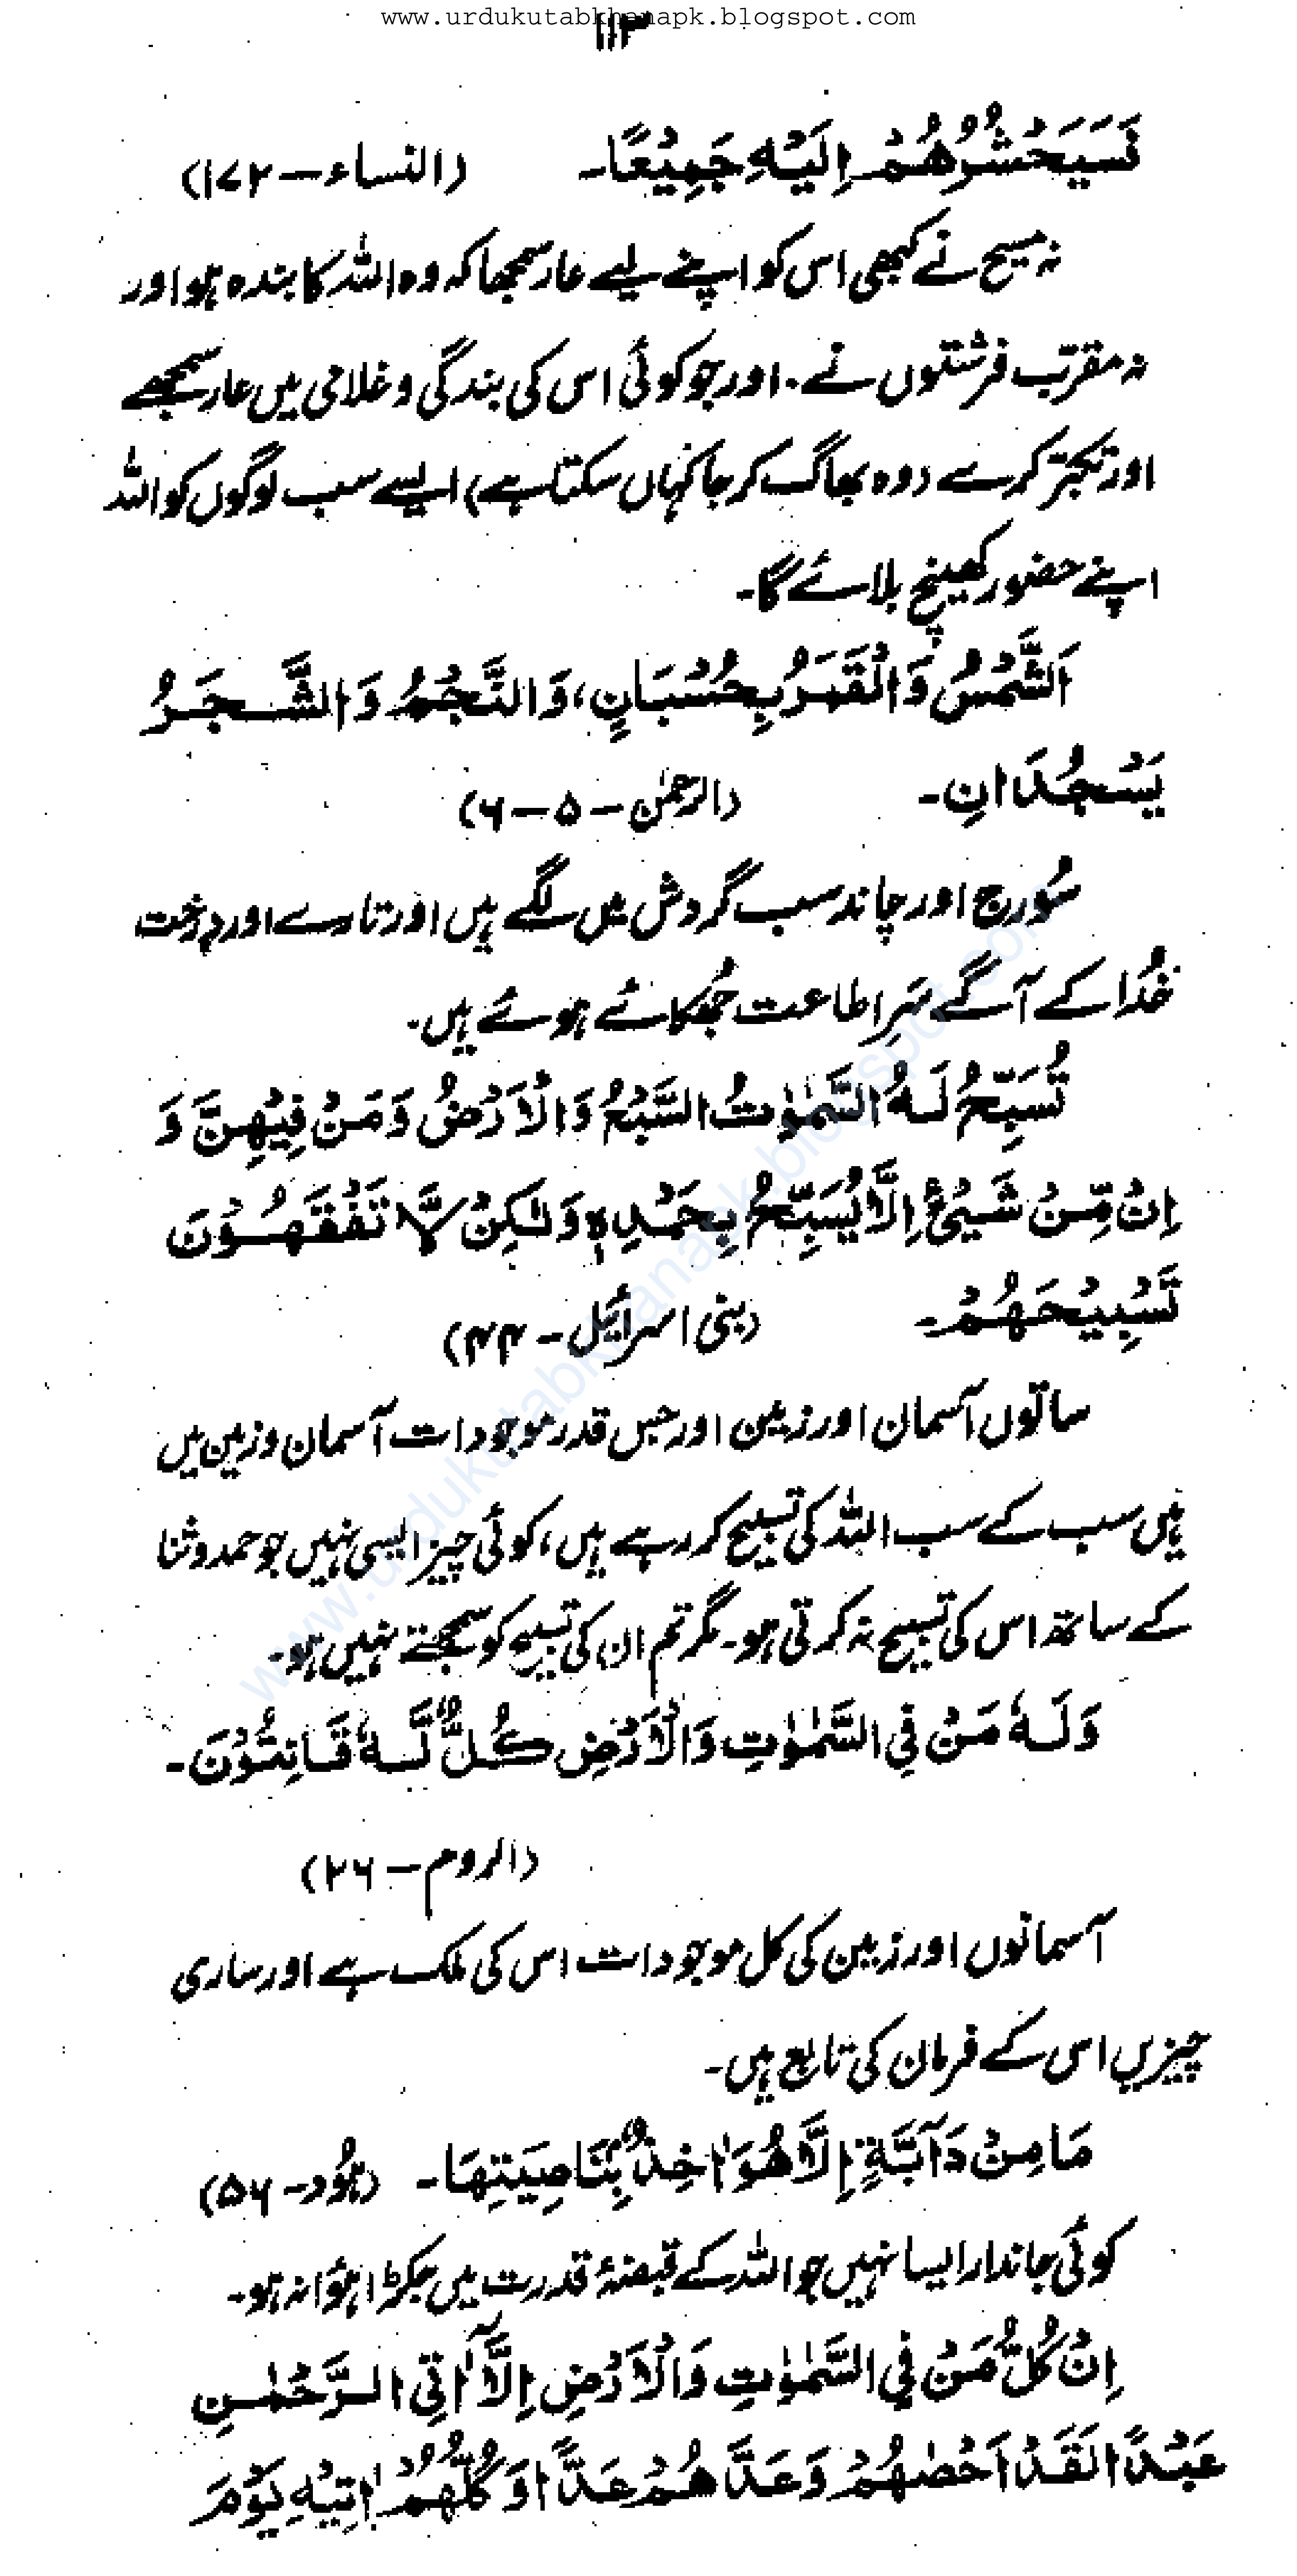 www.urdukutabkhanapk.blogspot.com
۱۱۳
فَسَيَحْشُرُهُمْ اِلَيْهِ جَمِيْعًا۔ (النساء – ۱۷۲)
نہ مسیح نے کبھی اس کو اپنے لیے عار سمجھا کہ وہ اللہ کا بندہ ہو اور
نہ مقرب فرشتوں نے۔ اور جو کوئی اس کی بندگی و غلامی میں عار سمجھے
اور تکبّر کرے (وہ بھاگ کر جا کہاں سکتا ہے) ایسے سب لوگوں کو اللہ
اپنے حضور کھینچ بلائے گا۔
اَلشَّمْسُ وَالْقَمَرُ بِحُسْبَانٍ، وَالنَّجْمُ وَالشَّجَرُ
يَسْجُدَانِ۔ (الرحمٰن – ۵ – ۶)
سُورج اور چاند سب گردش میں لگے ہیں اور تارے اور درخت
خُدا کے آگے سَرِ اطاعت جُھکائے ہوئے ہیں۔
تُسَبِّحُ لَهُ السَّمٰوٰتُ السَّبْعُ وَالْاَرْضُ وَمَنْ فِيْهِنَّ وَ
اِنْ مِّنْ شَيْئٍ اِلَّا يُسَبِّحُ بِحَمْدِهٖ وَلٰكِنْ لَّا تَفْقَهُوْنَ
تَسْبِيْحَهُمْ۔ (بنی اسرائیل – ۴۴)
ساتوں آسمان اور زمین اور جس قدر موجودات آسمان و زمین میں
ہیں سب کے سب اللہ کی تسبیح کر رہے ہیں، کوئی چیز ایسی نہیں جو حمد و ثنا
کے ساتھ اس کی تسبیح نہ کرتی ہو۔ مگر تم ان کی تسبیح کو سمجھتے نہیں ہو۔
وَلَهٗ مَنْ فِي السَّمٰوٰتِ وَالْاَرْضِ كُلٌّ لَّهٗ قَانِتُوْنَ۔
(الروم – ۲۶)
آسمانوں اور زمین کی کل موجودات اس کی ملک ہے اور ساری
چیزیں اس کے فرمان کی تابع ہیں۔
مَا مِنْ دَآبَّةٍ اِلَّا هُوَ اٰخِذٌ بِنَاصِيَتِهَا۔ (ہُود – ۵۶)
کوئی جاندار ایسا نہیں جو اللہ کے قبضۂ قدرت میں جکڑا ہوا نہ ہو۔
اِنْ كُلُّ مَنْ فِي السَّمٰوٰتِ وَالْاَرْضِ اِلَّآ اٰتِي الرَّحْمٰنِ
عَبْدًا لَقَدْ اَحْصٰهُمْ وَعَدَّهُمْ عَدًّا وَكُلُّهُمْ اٰتِيْهِ يَوْمَ
www.urdukutabkhanapk.blogspot.com